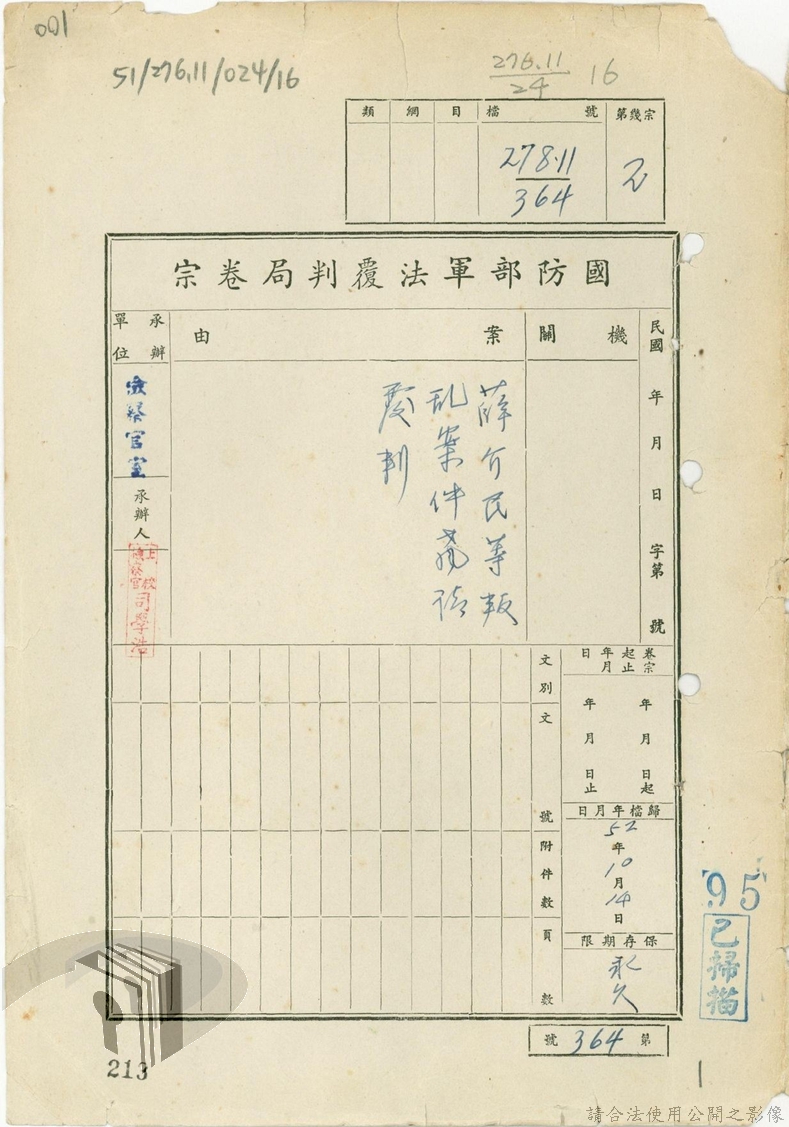 001
51/276.11/024/16
276.11/24 16
第幾宗
檔號
目
綱
類
278.11/364
國防部軍法覆判局卷宗
民國 年 月 日 字第 號
機關
案由
承辦單位
薛介民等叛
乱案件 請
覆判
檢察官室
承辦人
上校檢察官司學浩
卷宗起止年月日
年 月 日起
年 月 日止
歸檔年月日
52年10月14日
保存期限
永久
文別
文號
附件數
頁數
第 364 號
95
已掃描
213
請合法使用公開之影像